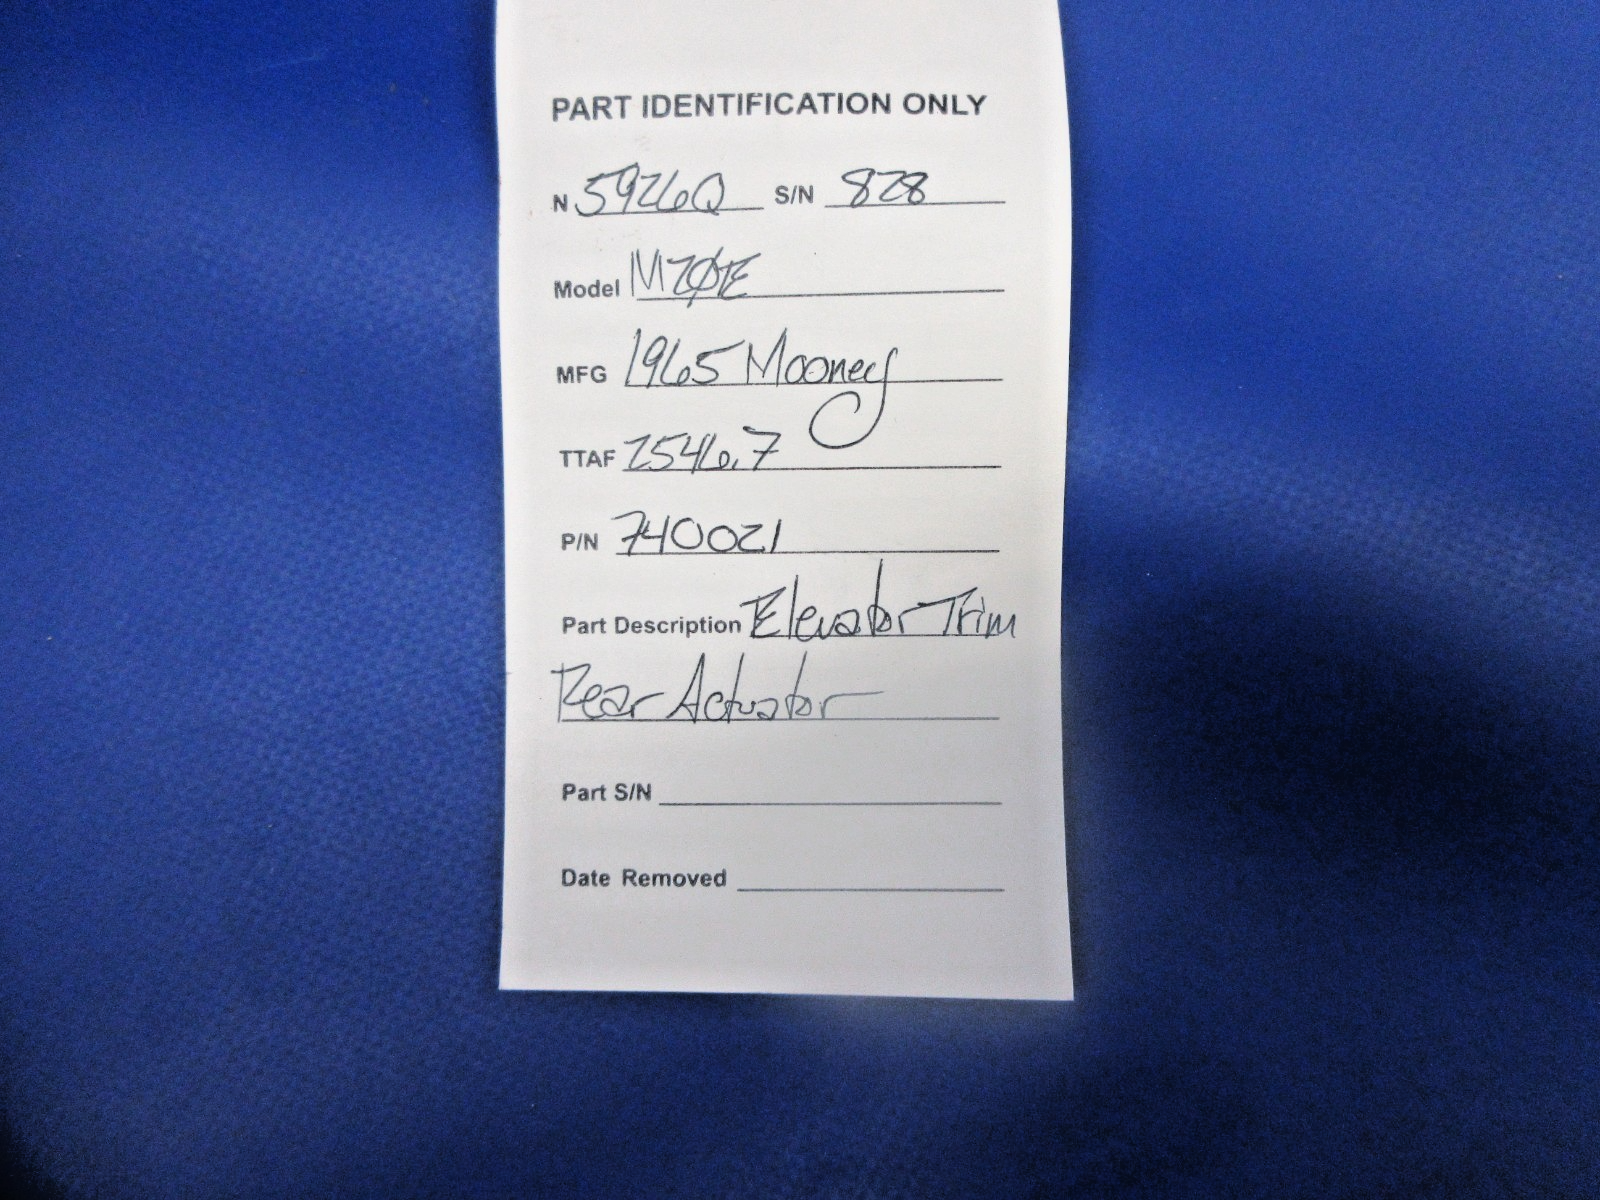 PART IDENTIFICATION ONLY
N 5926Q S/N 828
Model M20E
MFG 1965 Mooney
TTAF 2546.7
P/N 740021
Part Description Elevator Trim
Rear Actuator
Part S/N
Date Removed